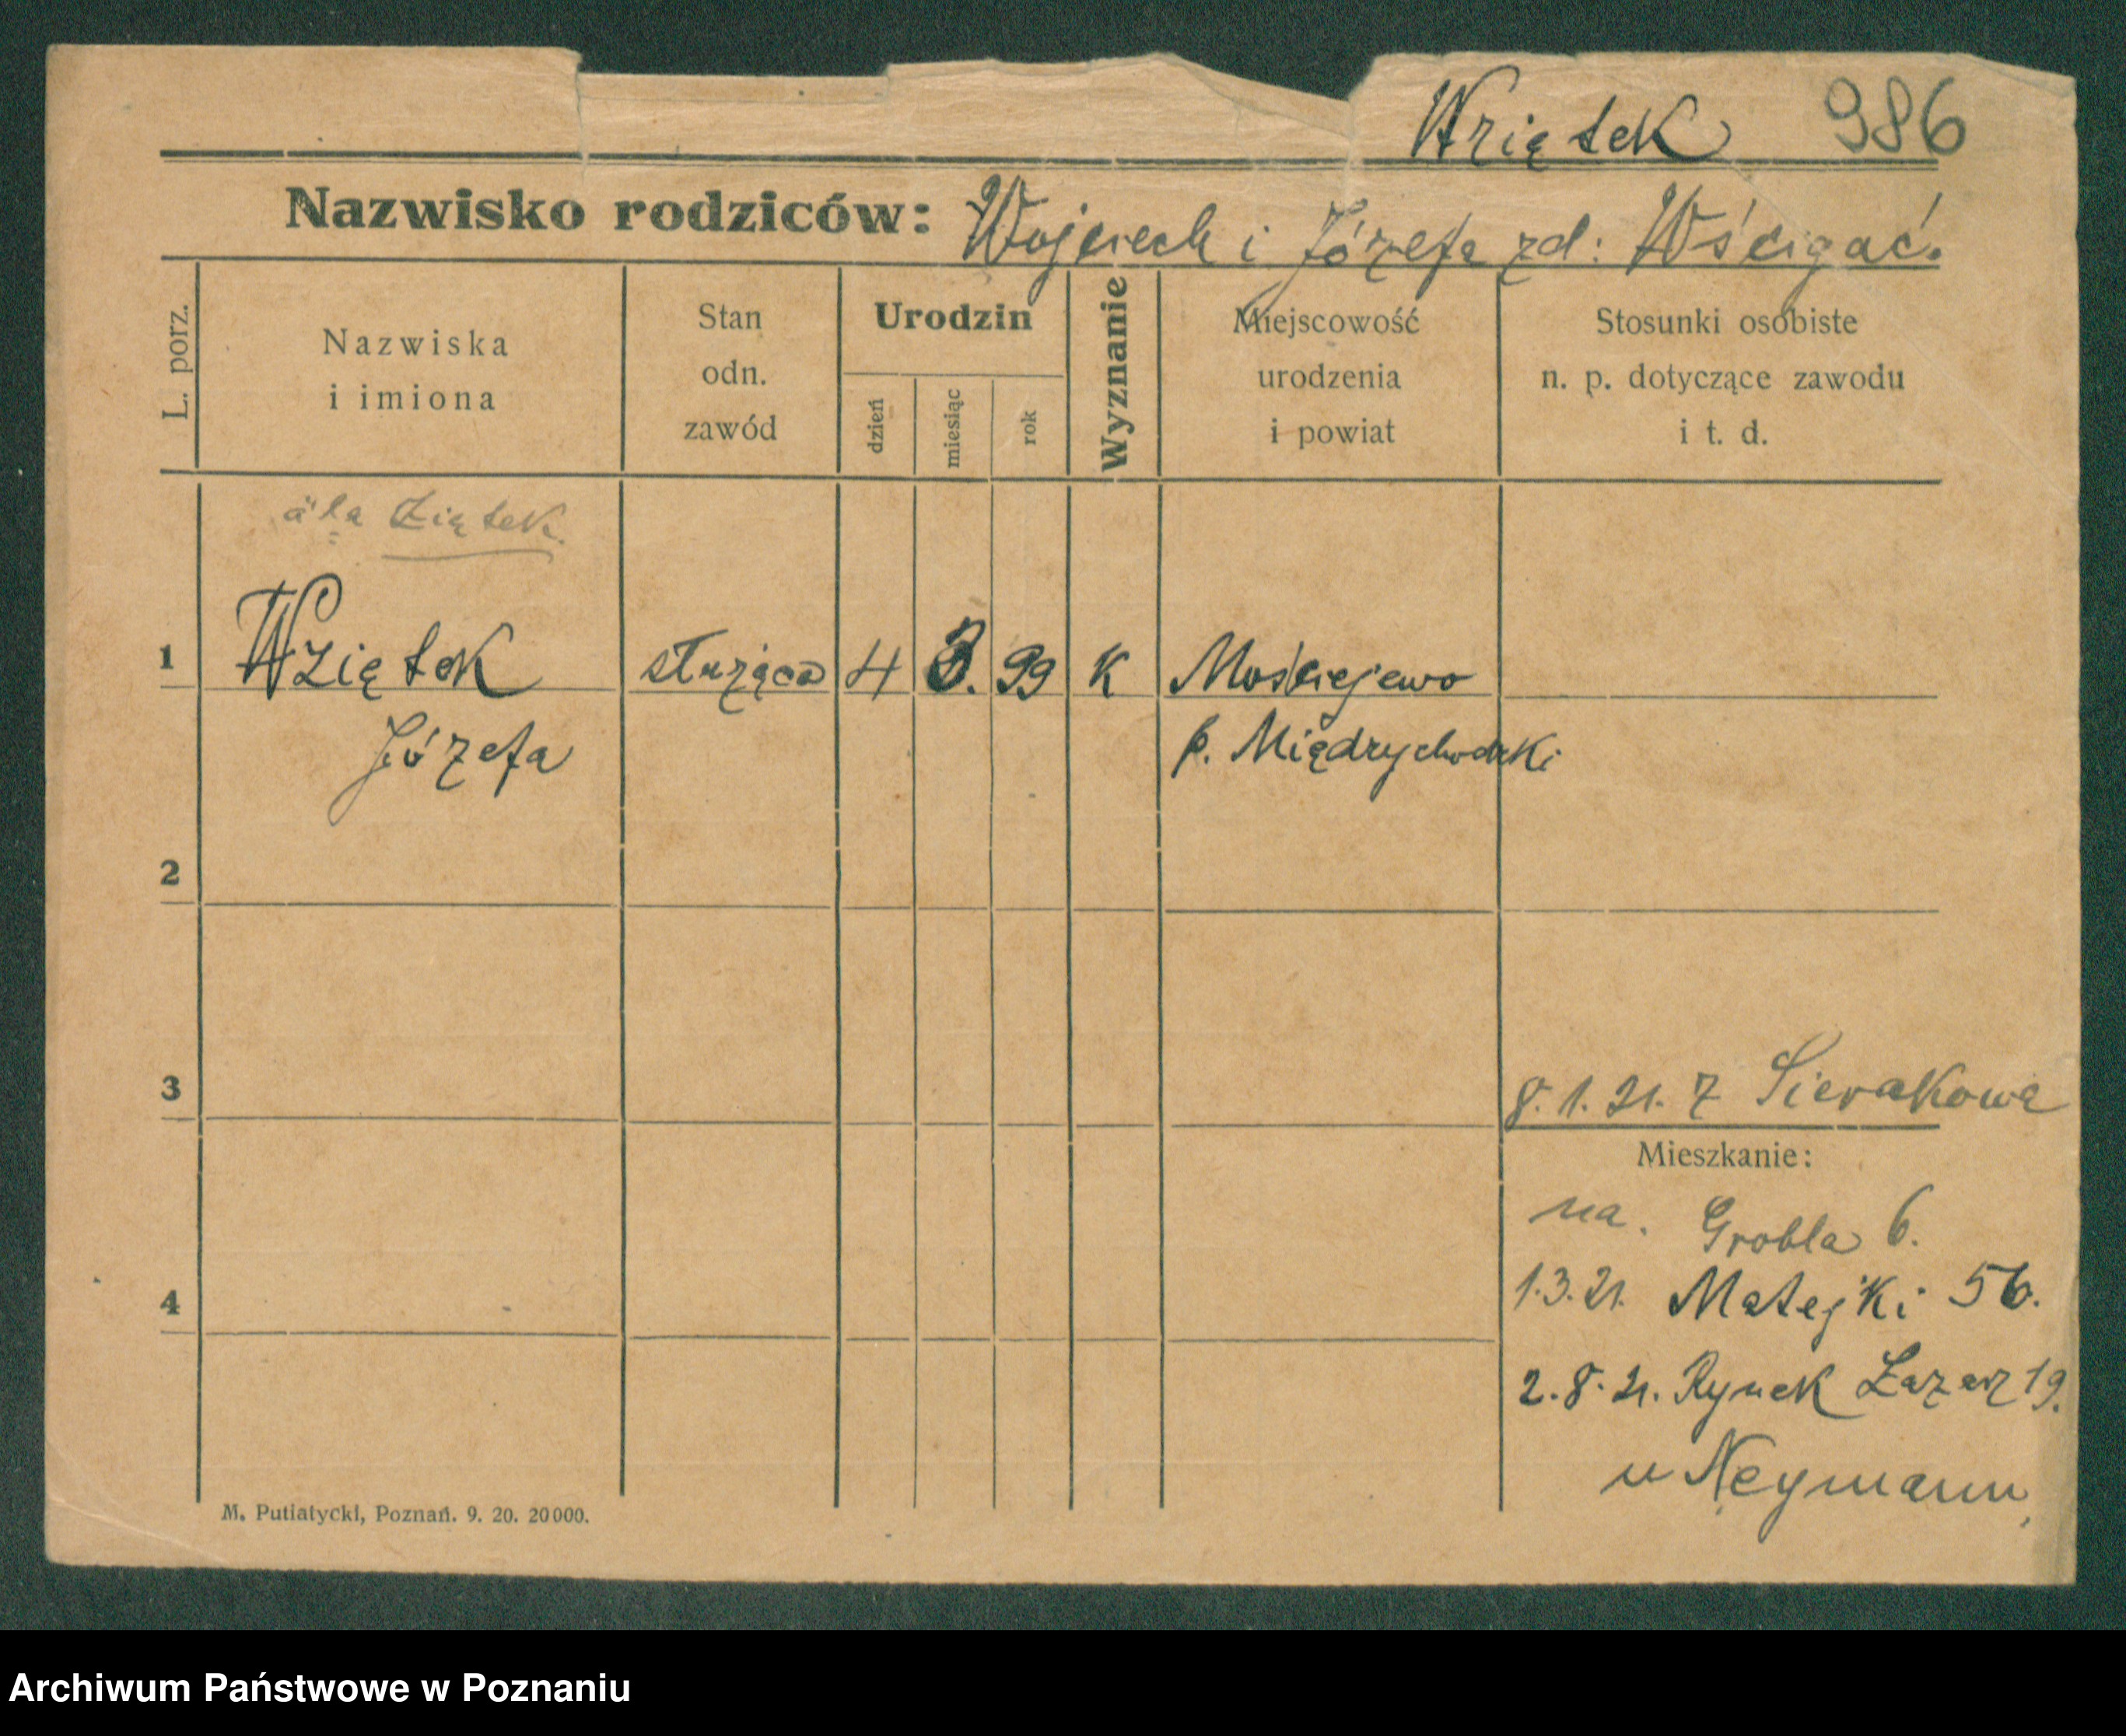 Wziętek 986
Nazwisko rodziców: Wojciech i Józefa zd: Wścigać.
L. porz.
Nazwiska
i imiona
Stan
odn.
zawód
Urodzin
dzień
miesiąc
rok
Wyznanie
Miejscowość
urodzenia
i powiat
Stosunki osobiste
n. p. dotyczące zawodu
i t. d.
Ziętek.
1 Wziętek służąca 4 3. 99 K Mościejewo
Józefa p. Międzychodzki
2
3
8. 1. 21. z Sierakowa
Mieszkanie:
na. Grobla 6.
4
1.3.21. Matejki 56.
2.8.21. Rynek Łazarz 19.
u Neymann
M. Putiatycki, Poznań. 9. 20. 20000.
Archiwum Państwowe w Poznaniu